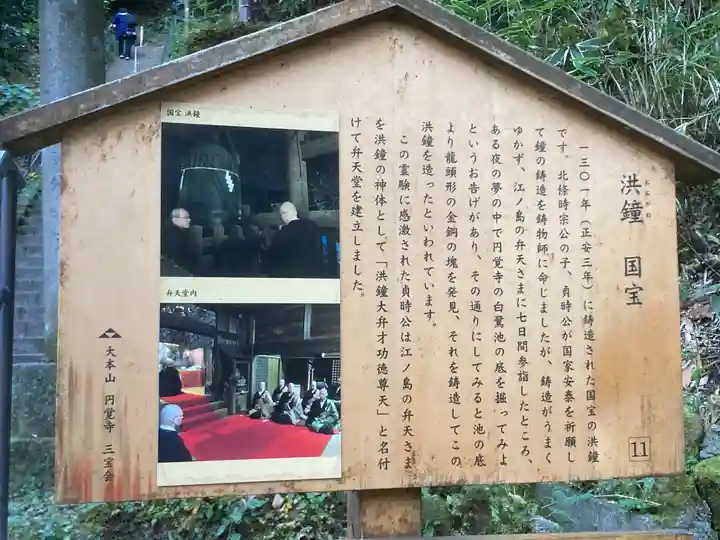 洪鐘 国宝
おおがね
一三〇一年（正安三年）に鋳造された国宝の洪鐘
です。北條時宗公の子、貞時公が国家安泰を祈願し
て鐘の鋳造を鋳物師に命じましたが、鋳造がうまく
ゆかず、江ノ島の弁天さまに七日間参詣したところ、
ある夜の夢の中で円覚寺の白鷺池の底を掘ってみよ
というお告げがあり、その通りにしてみると池の底
より龍頭形の金銅の塊を発見、それを鋳造してこの
洪鐘を造ったといわれています。
この霊験に感激された貞時公は江ノ島の弁天さま
を洪鐘の神体として「洪鐘大弁才功徳尊天」と名付
けて弁天堂を建立しました。
国宝 洪鐘
弁天堂内
大本山 円覚寺 三宝会
11